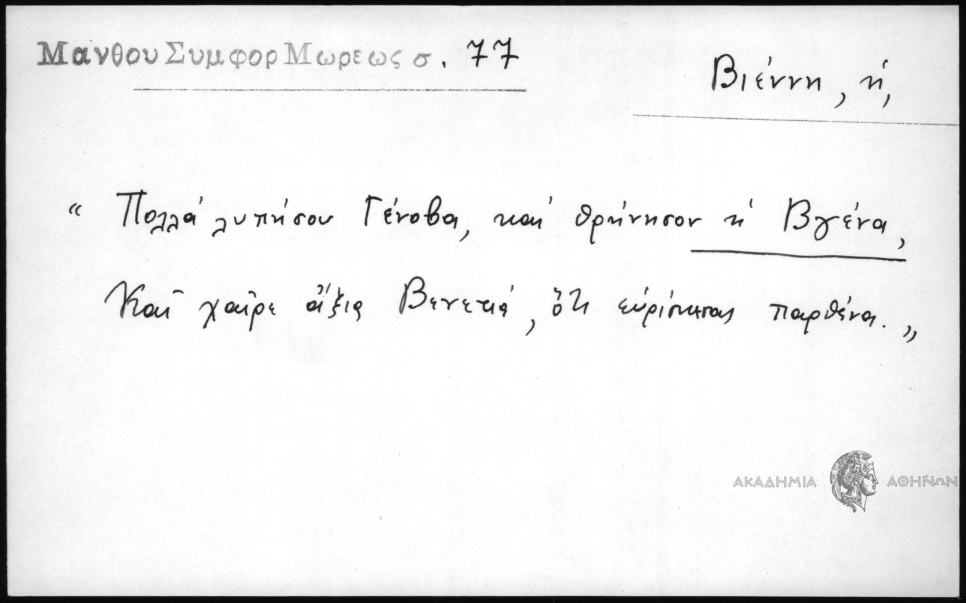 Μανθου Συμφορ Μωρεως σ. 77
Βιέννη, ἡ,
“ Πολλά λυπήσου Γένοβα, καί θρήνησον ἡ Βγένα,
Καί χαῖρε ἄξια Βενετιά, ὅτι εὑρίσκεσαι παρθένα. „
ΑΚΑΔΗΜΙΑ ΑΘΗΝΩΝ